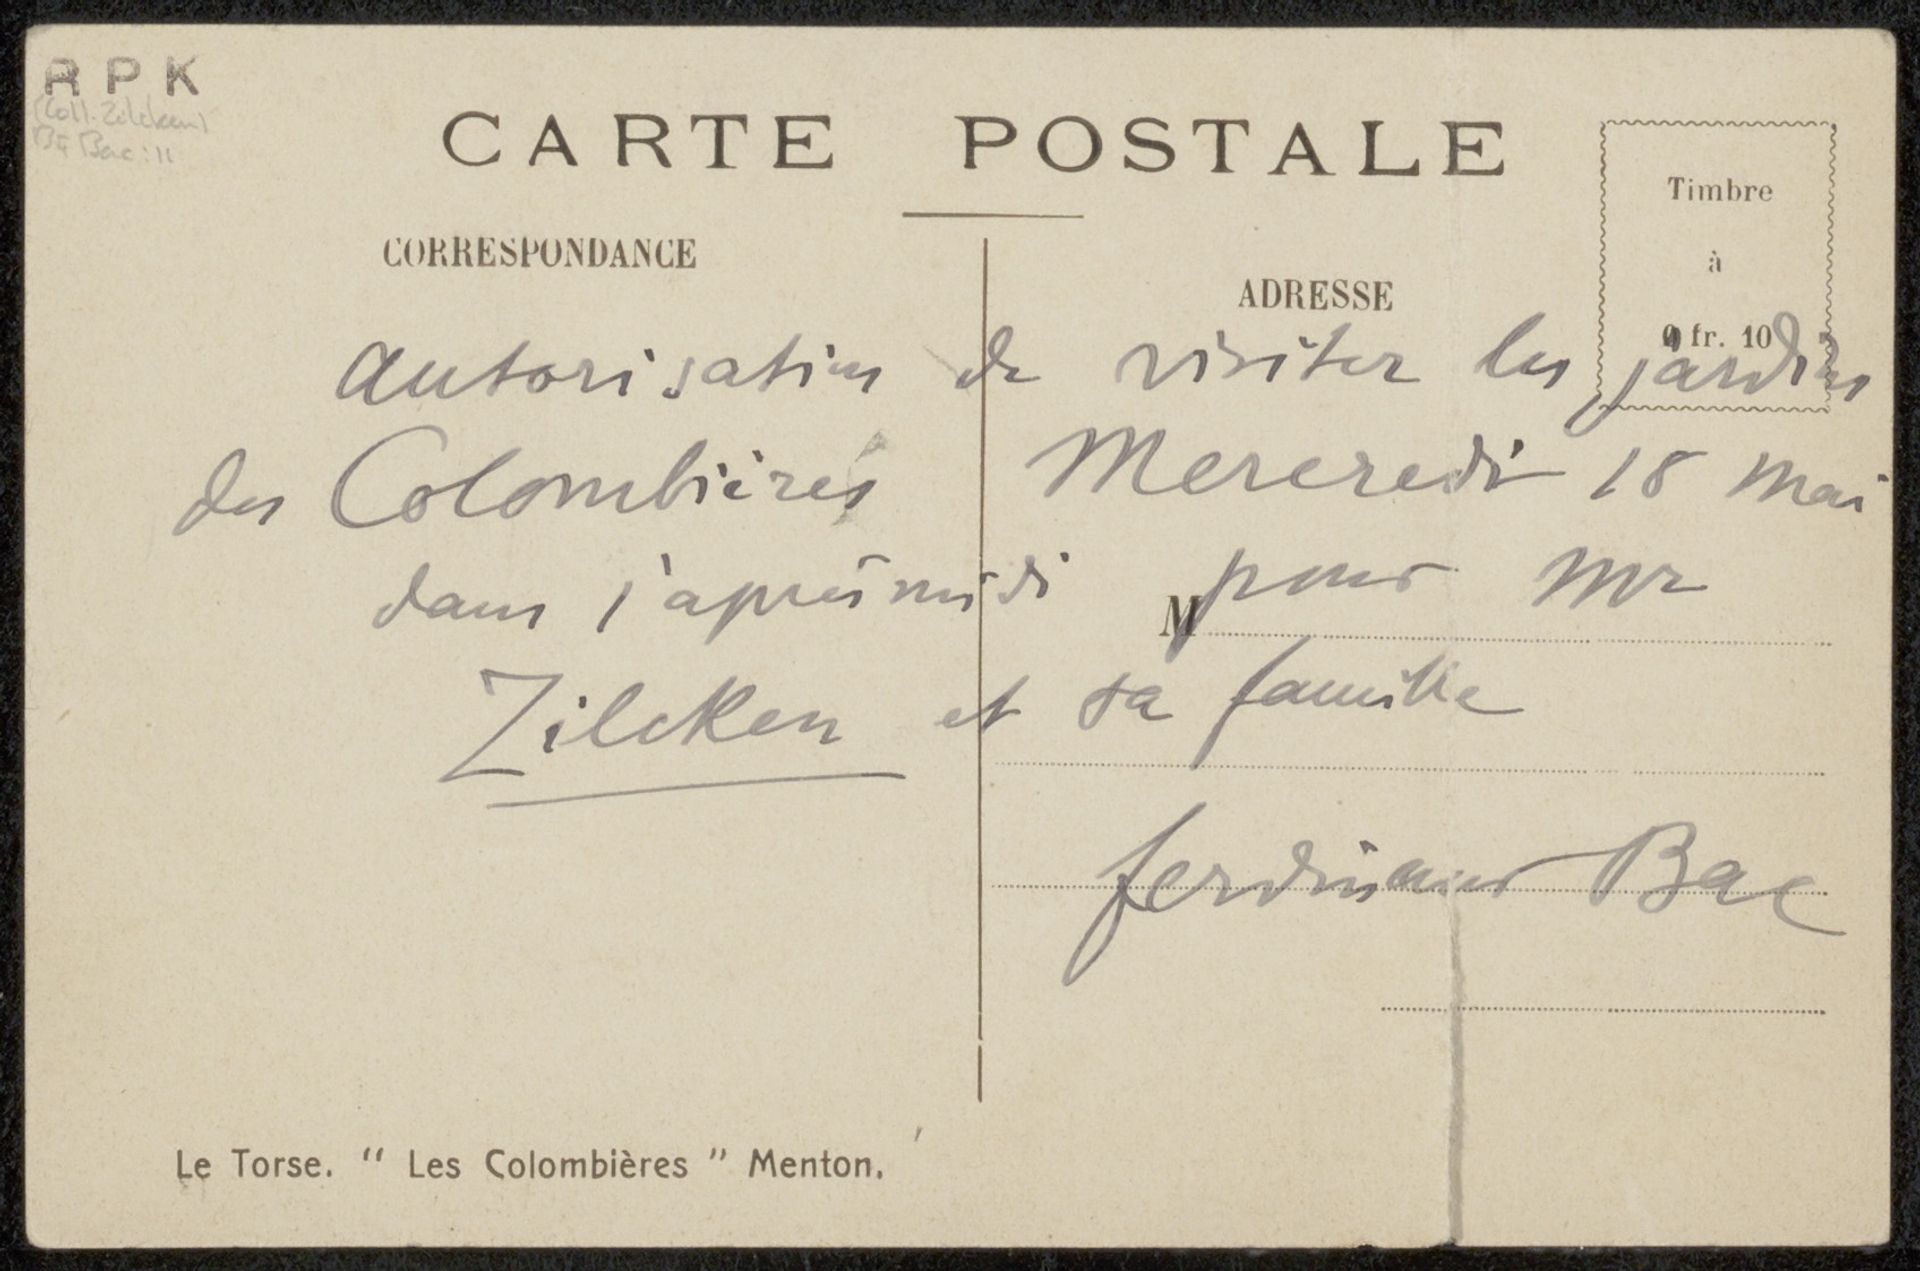 RPK
(Coll. Zilcken)
BF Bac: 11
CARTE POSTALE
CORRESPONDANCE
ADRESSE
Timbre
à
0 fr. 10
Autorisation de visiter les jardins
des Colombières Mercredi 18 Mai
dans l'après midi pour Mr
M
Zilcken et sa famille
Ferdinand Bac
Le Torse. " Les Colombières " Menton.